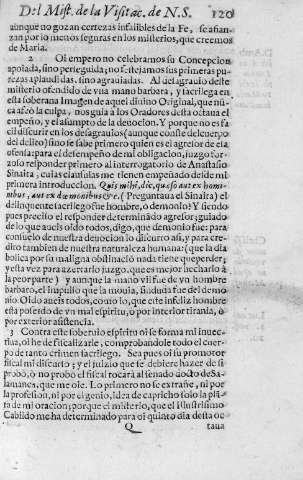 Del Mist. de la Visitac. de N.S. 120
aunque no gozan certezas infalibles de la Fe, se afian-
zan por lo menos seguras en los misterios, que creemos
de Maria.
2 Oi empero no celebramos su Concepcion
apoiada, sino perseguida; no festejamos sus primeras pu-
rezas aplaudidas, sino agraviadas. Al desagravio deste
misterio ofendido de una mano barbara, y tacrilega en
esta soberana Imagen de aquel divino Original, que nũ-
ca afeò la culpa, nos guia a los Oradores desta octava el
empeño, y el assumpto de la devocion. Y porque no es fa-
cil discurir en los desagravios (aunque conste del cuerpo
del delito) sino se sabe primero quien es el agresor de esta
ofensa: para el desempeño de mi obligacion, juzgo for-
zoso responder primero al interrogatorio de Anastasio
Sinaita, cuias clausulas me tienen empeñado desde mi
primera introduccion. Quis mihi, dic, quæso aut ex homi-
nibus, aut ex dæmonibus, &c. (Preguntava el Sinaita) el
delinquente sacrilego fue hombre, o demonio? Y siendo
pues preciso el responder determinado agresor; guiado
de lo que aueis oido todos, digo, que demonio fue: para
consuelo de nuestra devocion lo discurro asi, y para cre-
dito tambien de nuestra naturaleza humana (que la dia-
bolica por su maligna obstinació nada tiene que perder;
y esta vez para acertarlo juzgo, que es mejor hecharlo à
la peor parte) y aunque la mano vil fue de vn hombre
barbaro, el impulso que la movia, sin duda fue del demo-
nio. Oido aueis todos, como io, que este infeliz hombre
esta poseido de vn mal espiritu, ò por interior tirania, ò
por exterior asistencia.
3 Contra este sobervio espiritu oi se forma mi invec-
tiva, oi he de fiscalizarle, comprobandole todo el cuer-
po de tanto crimen sacrilego. Sea pues oi su promotor
fiscal mi discurso; y el juizio que se debiere hazer de si
probò, ò no probò el fiscal tocarà al senado docto de Sa-
lamanca, que me oie. Lo primero no se estrañe, ni por
la profesion, ni por el genio, idea de capricho solo la plã-
ta de mi oracion; porque el misterio, que el ilustrisimo
Cabildo me ha determinado para oi quinto dia desta oc-
Q taua